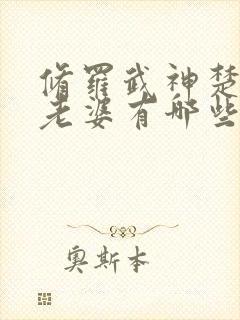 脩羅武神楚
老婆有哪些
奥斯本